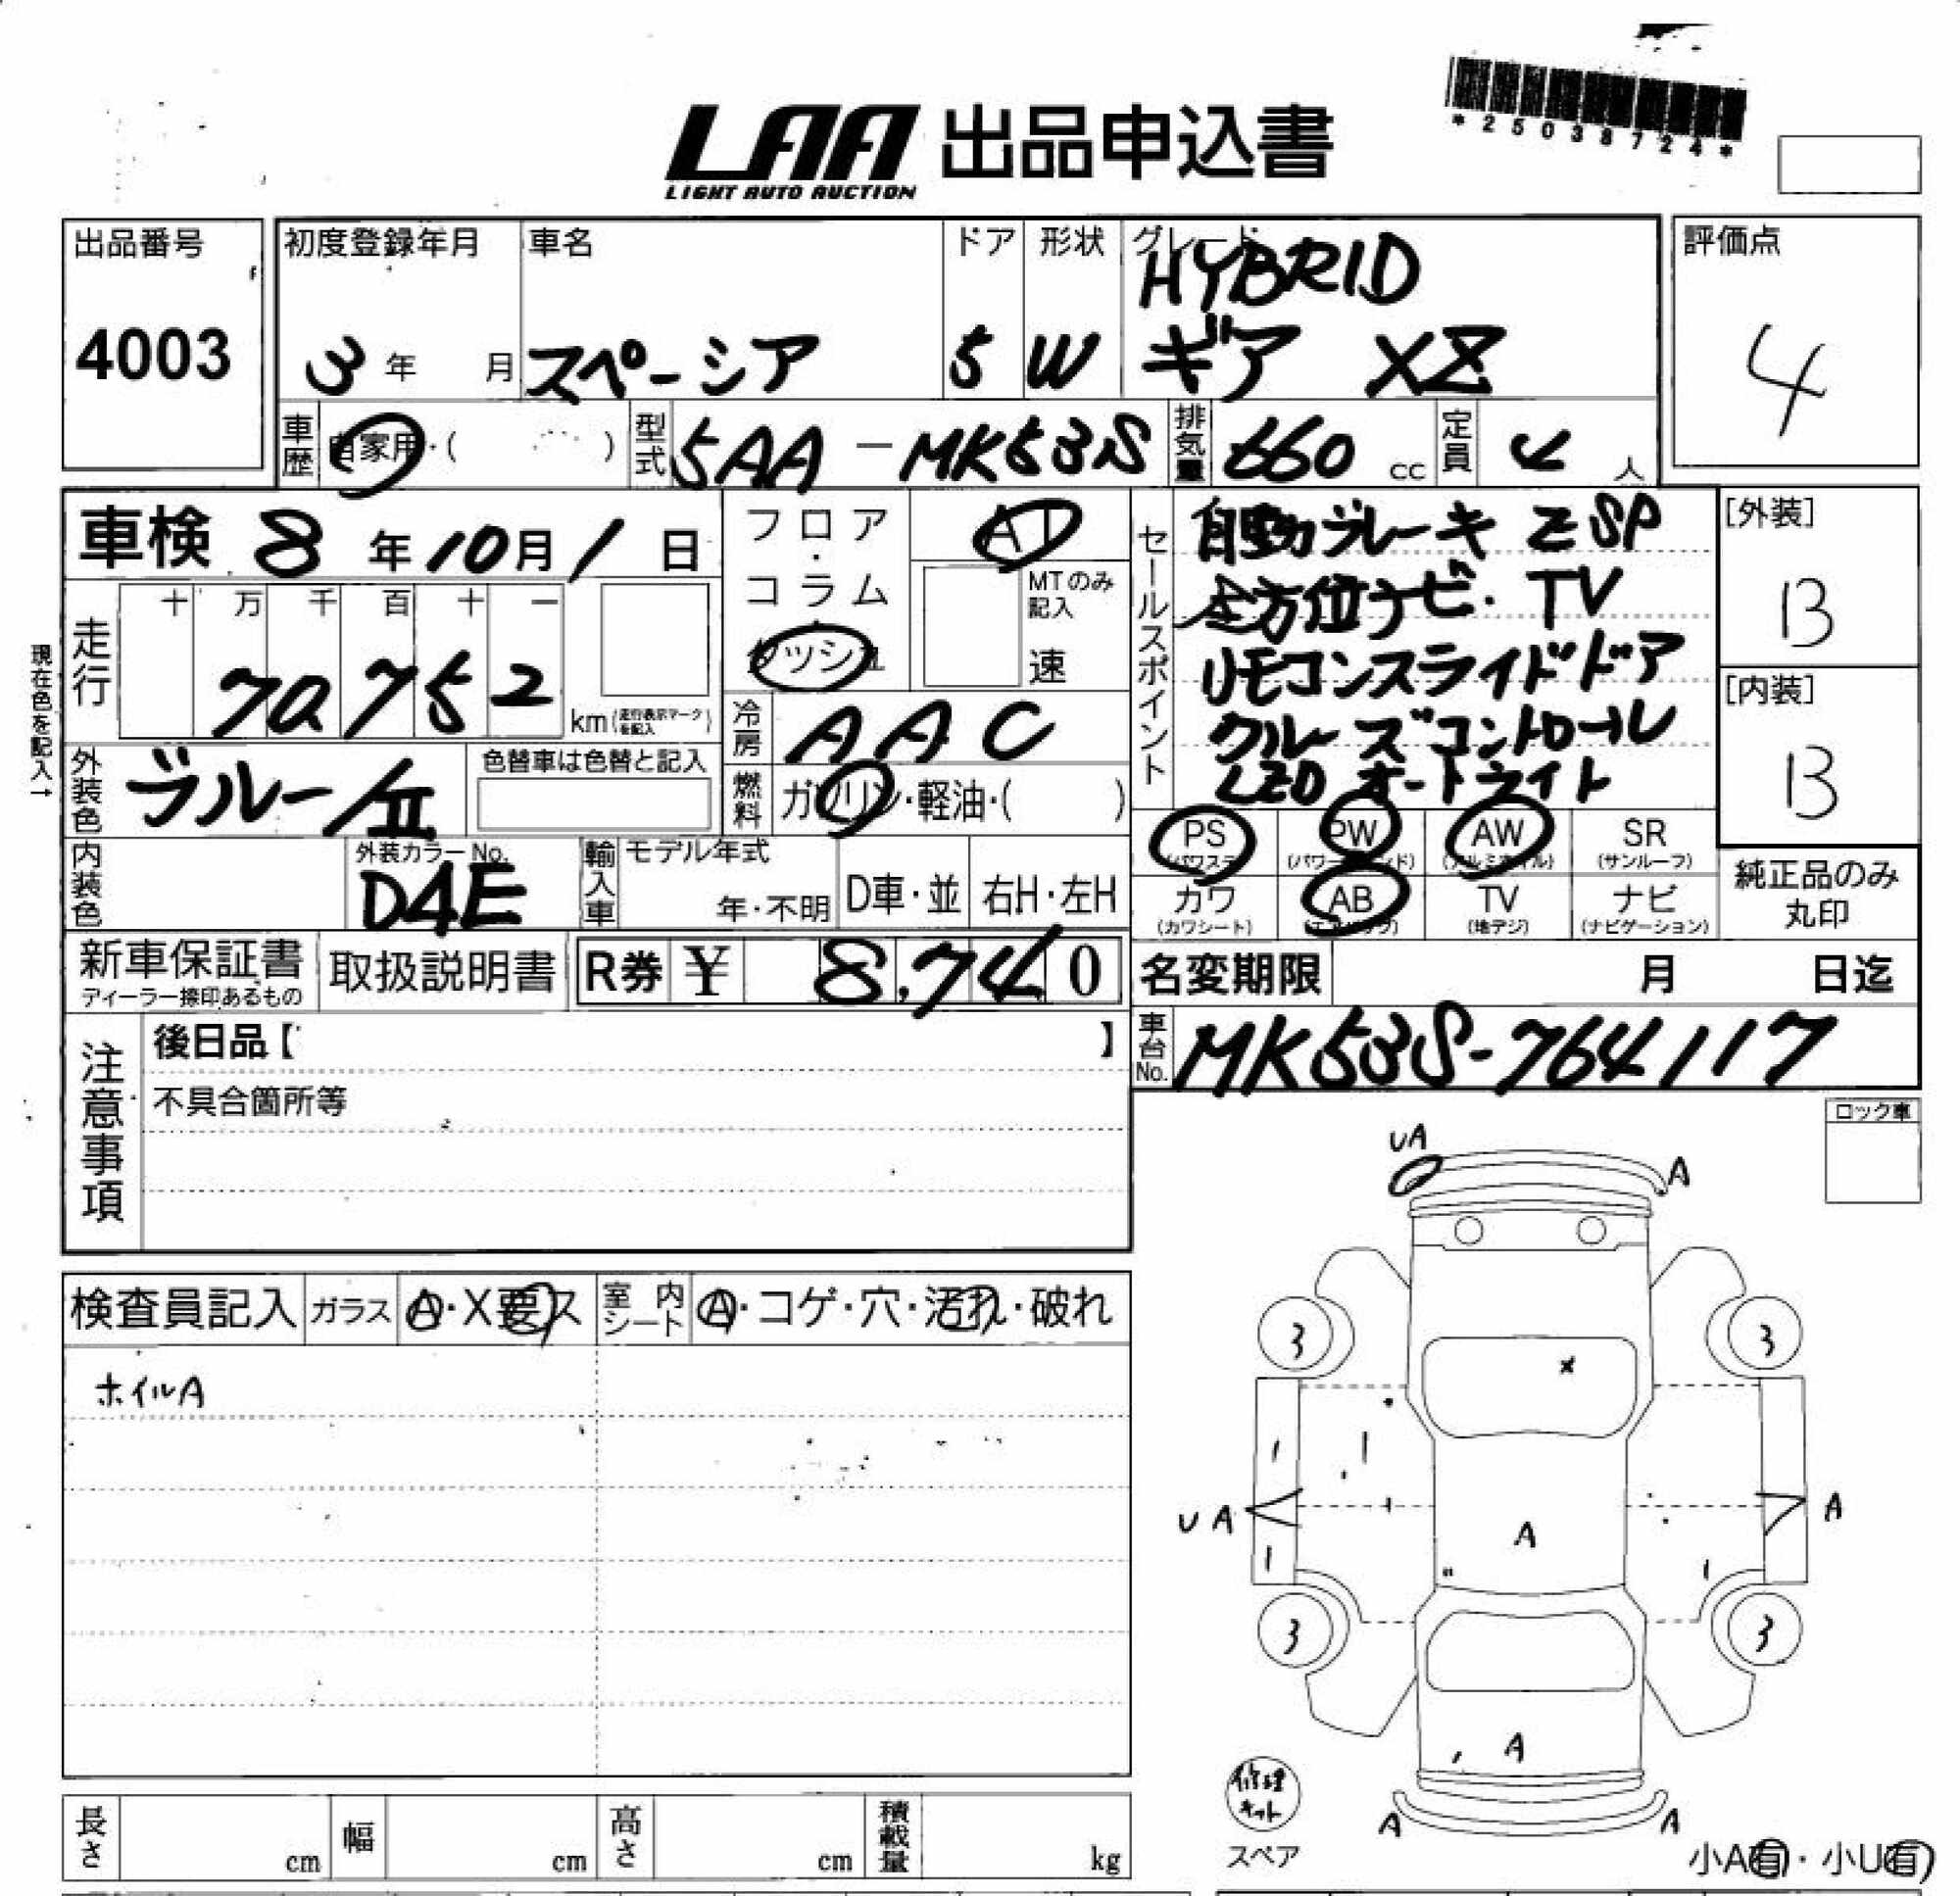 LAA 出品申込書
LIGHT AUTO AUCTION
*25038724*
出品番号
4003
初度登録年月
3年 月
車名
スペーシア
ドア
5
形状
W
グレード
HYBRID
ギア XZ
評価点
4
車歴
自家用・( )
型式
5AA-MK53S
排気量
660 cc
定員
4 人
車検 8年10月1日
フロア・コラム・ダッシュ
AT
MTのみ記入
速
セールスポイント
自動ブレーキ Z SP
全方位ナビ・TV
リモコンスライドドア
クルーズコントロール
LED オートライト
[外装]
B
[内装]
B
現在色を記入→
走行
十 万 千 百 十 一
70752
km(走行表示マークを記入)
冷房
AAC
外装色
ブルー/II
色替車は色替と記入
燃料
ガソリン・軽油・( )
PS
(パワステ)
PW
(パワーウィンド)
AW
(アルミホイル)
SR
(サンルーフ)
カワ
(カワシート)
AB
(エアバッグ)
TV
(地デジ)
ナビ
(ナビゲーション)
純正品のみ
丸印
内装色
外装カラーNo.
D4E
輸入車
モデル年式
年・不明
D車・並
右H・左H
新車保証書
ディーラー捺印あるもの
取扱説明書
R券 ¥ 8,740
名変期限 月 日迄
車台No.
MK53S-764117
注意事項
後日品【 】
不具合箇所等
ロック車
検査員記入
ガラス
A・X要ス
室内シート
A・コゲ・穴・汚れ・破れ
ホイルA
UA
A
3
3
UA
A
A
3
3
A
A
A
修理キット
スペア
小A有・小U有
長さ cm
幅 cm
高さ cm
積載量 kg